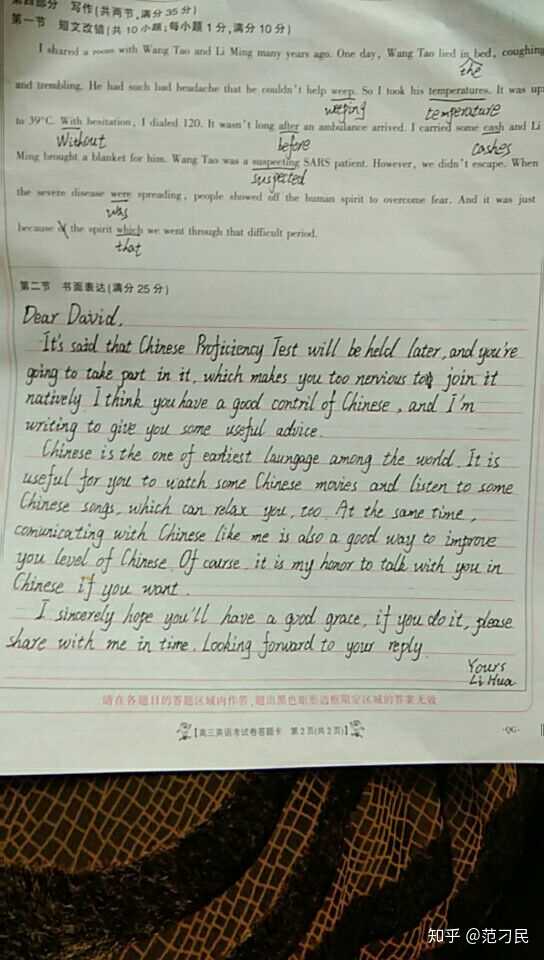 第四部分 写作(共两节,满分35分)
第一节 短文改错(共10小题;每小题1分,满分10分)
I shared a room with Wang Tao and Li Ming many years ago. One day, Wang Tao lied in bed, coughing
the
and trembling. He had such bad headache that he couldn't help weep. So I took his temperatures. It was up
weeping temperature
to 39°C. With hesitation, I dialed 120. It wasn't long after an ambulance arrived. I carried some cash and Li
Without before cashes
Ming brought a blanket for him. Wang Tao was a suspecting SARS patient. However, we didn't escape. When
suspected
the severe disease were spreading, people showed off the human spirit to overcome fear. And it was just
was
because of the spirit which we went through that difficult period.
that
第二节 书面表达(满分25分)
Dear David,
It's said that Chinese Proficiency Test will be held later, and you're
going to take part in it, which makes you too nervious to join it
natively. I think you have a good contril of Chinese, and I'm
writing to give you some useful advice.
Chinese is the one of earliest laungage among the world. It is
useful for you to watch some Chinese movies and listen to some
Chinese songs, which can relax you, too. At the same time,
comunicating with Chinese like me is also a good way to improve
you level of Chinese. Of course, it is my honor to talk with you in
Chinese if you want.
I sincerely hope you'll have a good grace, if you do it, please
share with me in time. Looking forward to your reply.
Yours
Li Hua
请在各题目的答题区域内作答,超出黑色矩形边框限定区域的答案无效
【高三英语考试卷答题卡 第2页(共2页)】
·QG·
知乎 @范刁民